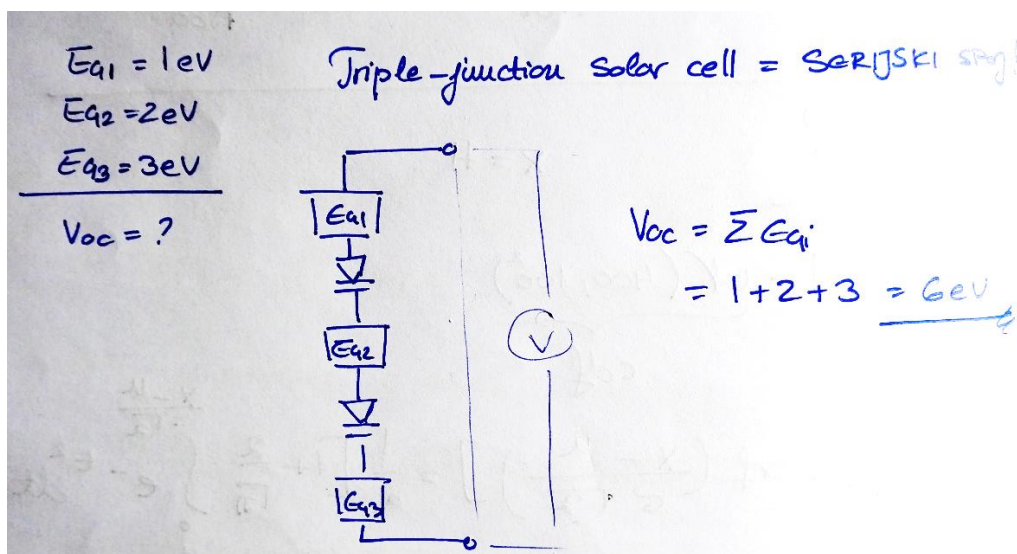 EG1 = 1eV
EG2 = 2eV
EG3 = 3eV
Voc = ?
Triple-junction Solar cell = SERIJSKI
EG1
EG2
EG3
V
Voc = Σ EGi
= 1+2+3 = 6eV